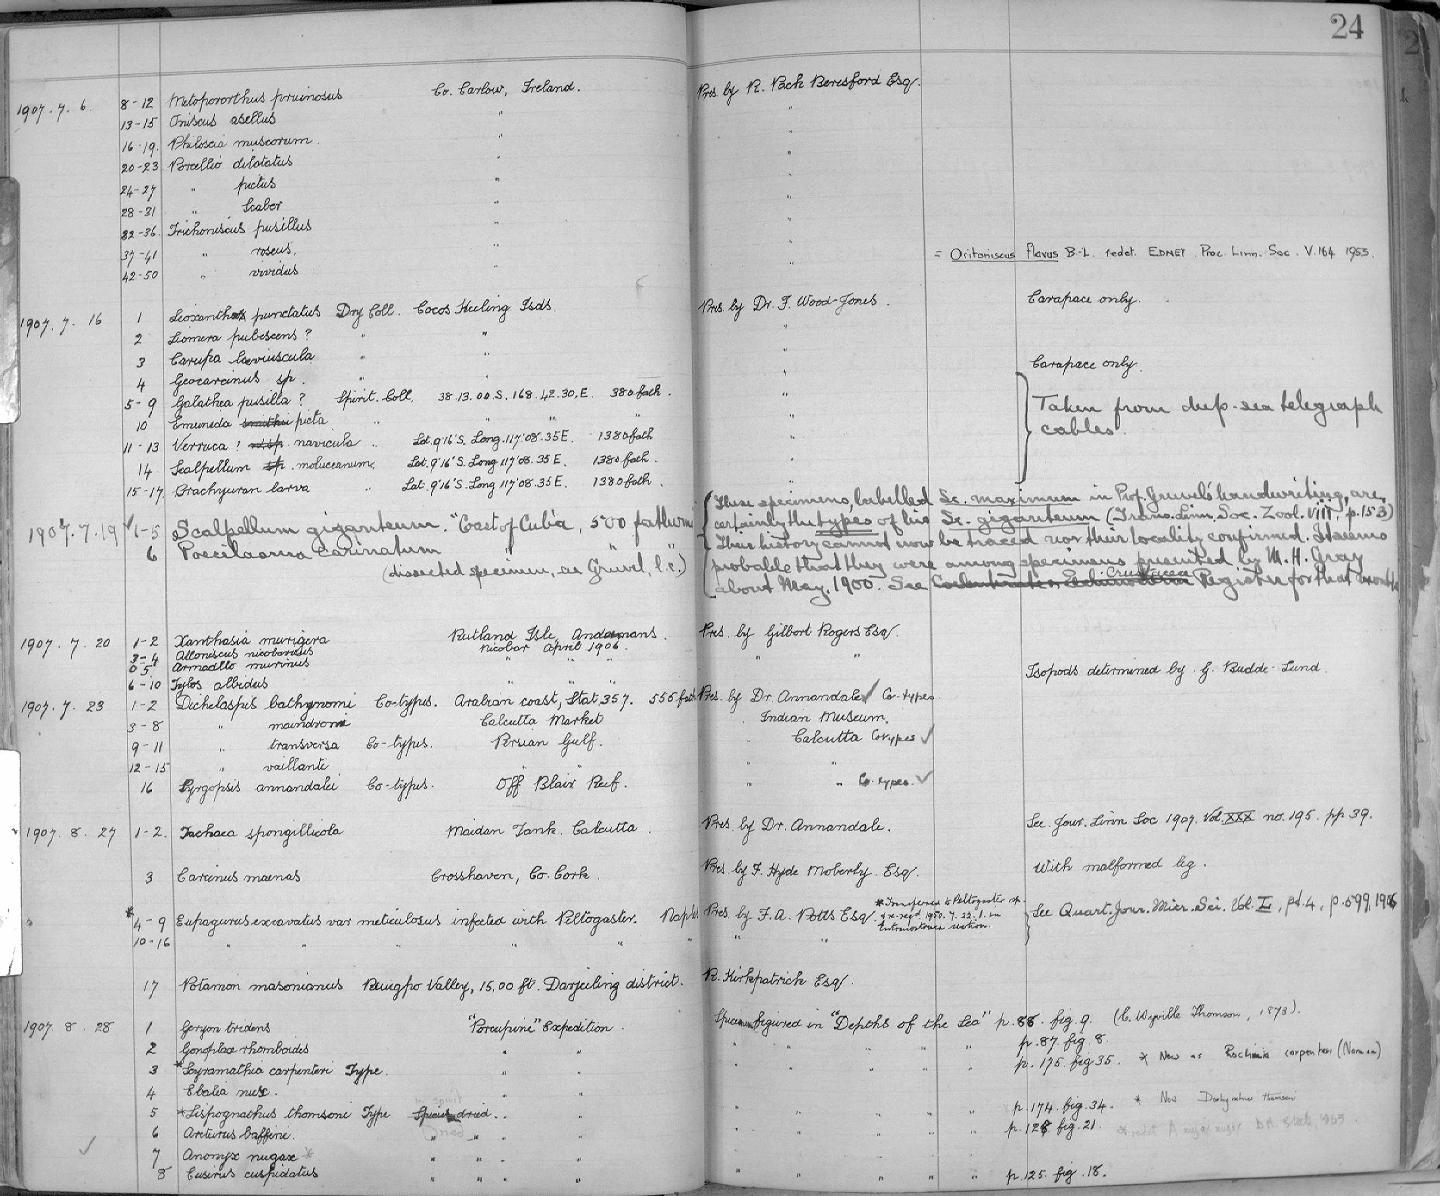 24
1907. 7. 6. 8-12 Metoponorthus pruinosus Co. Carlow, Ireland. Pres. by R. Pack Beresford Esq.
13-15 Oniscus asellus " "
16-19. Philoscia muscorum. " "
20-23 Porcellio dilatatus " "
24-27 " pictus " "
28-31 " Scaber " "
32-36. Trichoniscus pusillus " "
37-41 " roseus. " " = Oritoniscus flavus B-L. redet. EDNEY Proc. Linn. Soc. V.164 1953.
42-50 " vividus " "
1907. 7. 16 1 Leoxanthus punctatus Dry Coll. Cocos Keeling Isds. Pres. by Dr. F. Wood-Jones. Carapace only.
2 Liomera pubescens? " " "
3 Carupa laeviuscula " " " Carapace only.
4 Geocarcinus sp. " " "
5-9 Galathea pusilla? Spirit. Coll. 38.13.00.S. 168.42.30.E. 380 fath. " Taken from deep-sea telegraph
10 Emunida smithii picta " " " " cables.
11-13 Verruca? nd.sp. navicula " Lat. 9°16'S. Long. 117°08.35E. 1380 fath "
14 Scalpellum sp. moluccanum. Lat. 9°16'S. Long 117°08.35E. 1380 fath. "
15-17. Brachyuran larva " Lat. 9°16'S. Long 117°08.35E. 1380 fath. "
1907.7.19 1-5 Scalpellum giganteum. "Coast of Cuba, 500 fathoms These specimens, labelled Sc. maximum in Prof. Gruvel's handwriting, are
certainly the types of his Sc. giganteum (Trans. Linn. Soc. Zool. VIII, p.153)
6 Poecilasma carinatum " " Their history cannot now be traced nor their locality confirmed. It seems
(dissected specimen, see Gruvel, l.c.) probable that they were among specimens presented by M. H. Gray
about May, 1900. See Crustacea Register for that month
1907. 7. 20 1-2 Xanthasia murigera Rutland Isle, Andamans. Pres. by Gilbert Rogers Esq.
3-4 Alloniscus nicobaricus Nicobar April 1906. " "
5 Armadillo murinus " " " Isopods determined by G. Budde-Lund.
6-10 Tylos albidus " " "
1907. 7. 23 1-2 Dichelaspis bathynomi Co-types. Arabian coast, Stat. 357. 555 fath Pres. by Dr. Annandale ✓ Co-types
3-8 " maindroni Calcutta Market " Indian Museum.
9-11 " transversa Co-types. Persian Gulf. " Calcutta Cotypes ✓
12-15 " vaillanti " " "
16 Pyrgopsis annandalei Co-types. Off Blair Reef. " " Co-types. ✓
1907. 8. 27 1-2. Tachaea spongillicola Maidan Tank. Calcutta. Pres by Dr. Annandale. See Jour. Linn Soc 1907. Vol. XXX no. 195. pp 39.
3 Carcinus maenas Crosshaven, Co. Cork. Pres by F. Hyde Moberly. Esq. With malformed leg.
* 4-9 Eupagurus excavatus var meticulosus infected with Peltogaster. Naples Pres by F. A. Potts Esq. See Quart. Jour. Micr. Sci. Vol. L, pt. 4, p. 599, 1906
* Transferred to Peltogaster sp.
& re-regd 1950. 7. 22. 1. in
Entomostraca section.
10-16 " " " " " " " "
17 Potamon masonianus Rungpo Valley, 15,00 ft. Darjeeling district. R. Kirkpatrick Esq.
1907. 8. 28 1 Geryon tridens "Porcupine" Expedition. Specimen figured in "Depths of the Sea" p. 88. fig. 9. (C. Wyville Thomson, 1873).
2 Gonoplax rhomboides " " " " " " p. 87. fig 8.
3 *Scyramathia carpenteri Type. " " " " " " p. 175. fig 35. * Now as Rochinia carpenteri (Norman)
4 Ebalia nux. " " "
5 *Lispognathus thomsoni Type Spirit dried. " " " " " p. 174. fig. 34. * Now Dorhynchus thomsoni
6 Arcturus baffini. " " " " " " " p. 128 fig. 21.
7 Anonyx nugax * " " " "
8 Eusirus cuspidatus " " " " " " " p. 125. fig. 18.